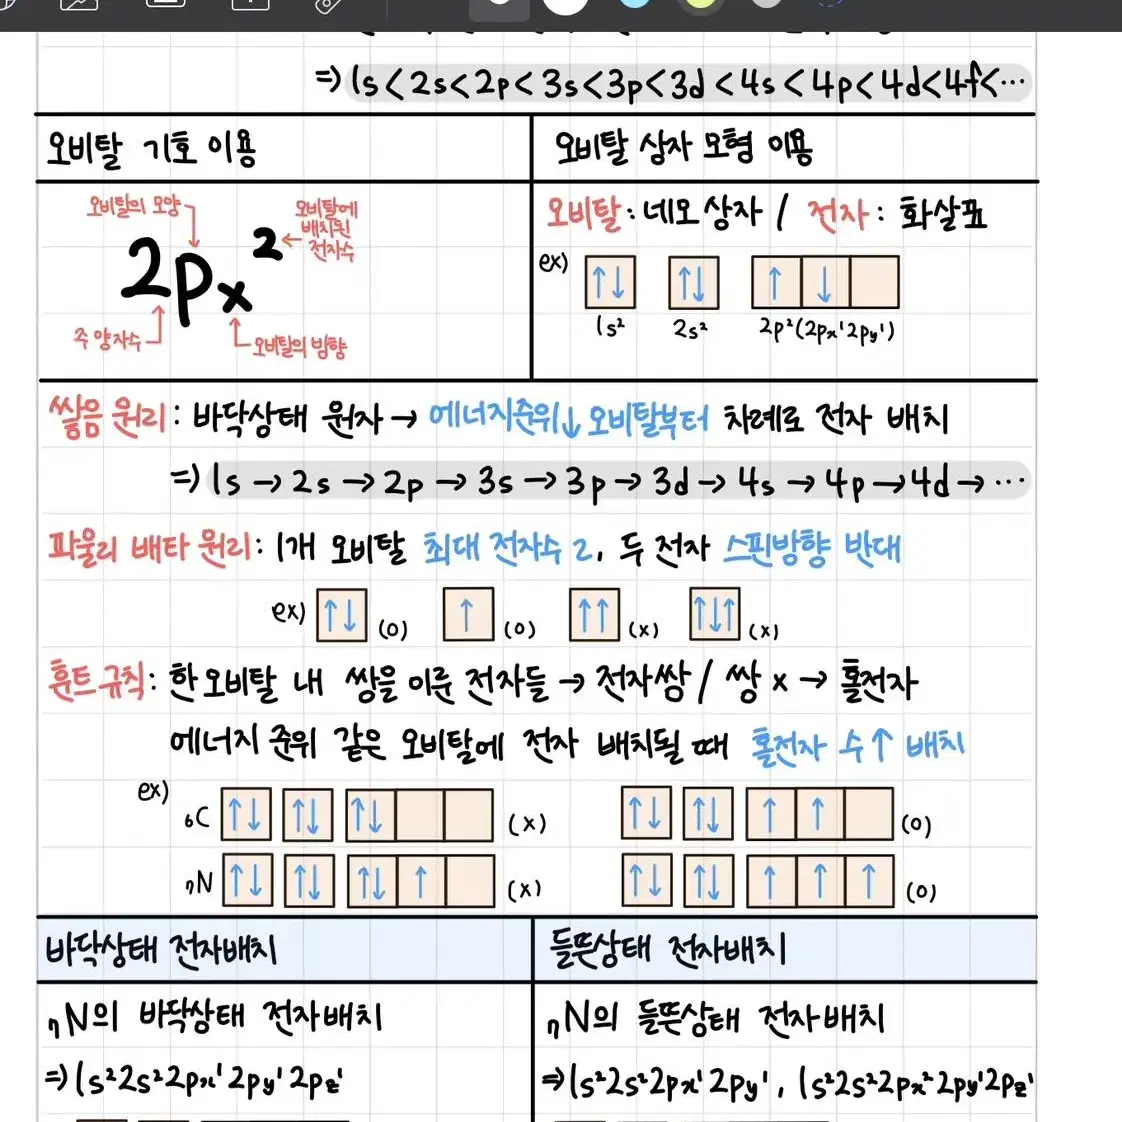 ⇒ 1s<2s<2p<3s<3p<3d<4s<4p<4d<4f<…
오비탈 기호 이용
오비탈 상자 모형 이용
오비탈의 모양
오비탈에
배치된
전자수
2px²
주 양자수
오비탈의 방향
오비탈 : 네모 상자 / 전자 : 화살표
ex) ↑↓ ↑↓ ↑ ↓
1s² 2s² 2p²(2px¹2py¹)
쌓음 원리 : 바닥상태 원자 → 에너지준위↓ 오비탈부터 차례로 전자 배치
⇒ 1s → 2s → 2p → 3s → 3p → 3d → 4s → 4p → 4d → …
파울리 배타 원리 : 1개 오비탈 최대 전자수 2, 두 전자 스핀방향 반대
ex) ↑↓ (O) ↑ (O) ↑↑ (x) ↑↓↑ (x)
훈트 규칙 : 한 오비탈 내 쌍을 이룬 전자들 → 전자쌍 / 쌍 x → 홀전자
에너지 준위 같은 오비탈에 전자 배치될 때 홀전자 수↑ 배치
ex)
₆C ↑↓ ↑↓ ↑↓ (x) ↑↓ ↑↓ ↑ ↑ (O)
₇N ↑↓ ↑↓ ↑↓ ↑ (x) ↑↓ ↑↓ ↑ ↑ ↑ (O)
바닥상태 전자배치
들뜬상태 전자배치
₇N의 바닥상태 전자배치
⇒ 1s²2s²2px¹2py¹2pz¹
₇N의 들뜬상태 전자배치
⇒ 1s²2s²2px¹2py¹, 1s²2s²2px²2py¹2pz¹